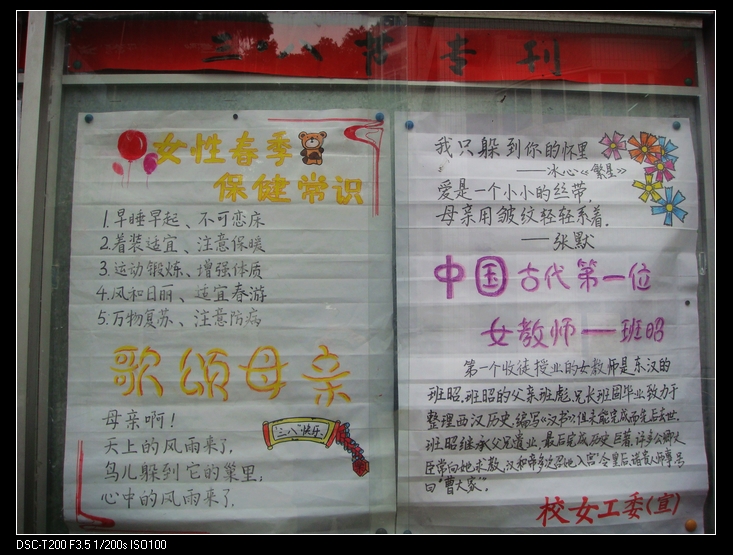 三·八节专刊
女性春季
保健常识
1.早睡早起、不可恋床
2.着装适宜、注意保暖
3.运动锻炼、增强体质
4.风和日丽、适宜春游
5.万物复苏、注意防病
歌颂母亲
母亲啊！
天上的风雨来了，
鸟儿躲到它的巢里；
心中的风雨来了，
"三八"快乐
我只躲到你的怀里
——冰心《繁星》
爱是一个小小的丝带，
母亲用皱纹轻轻系着.
——张默
中国古代第一位
女教师——班昭
第一个收徒授业的女教师是东汉的
班昭，班昭的父亲班彪，兄长班固毕业致力于
整理西汉历史，编写《汉书》，但未能完成而先后去世，
班昭继承父兄遗业，最后完成历史巨著，许多公卿大
臣常向她求教，汉和帝多次召她入宫，令皇后、诸贵人师事号
曰"曹大家"。
校女工委(宣)
DSC-T200 F3.5 1/200s ISO100